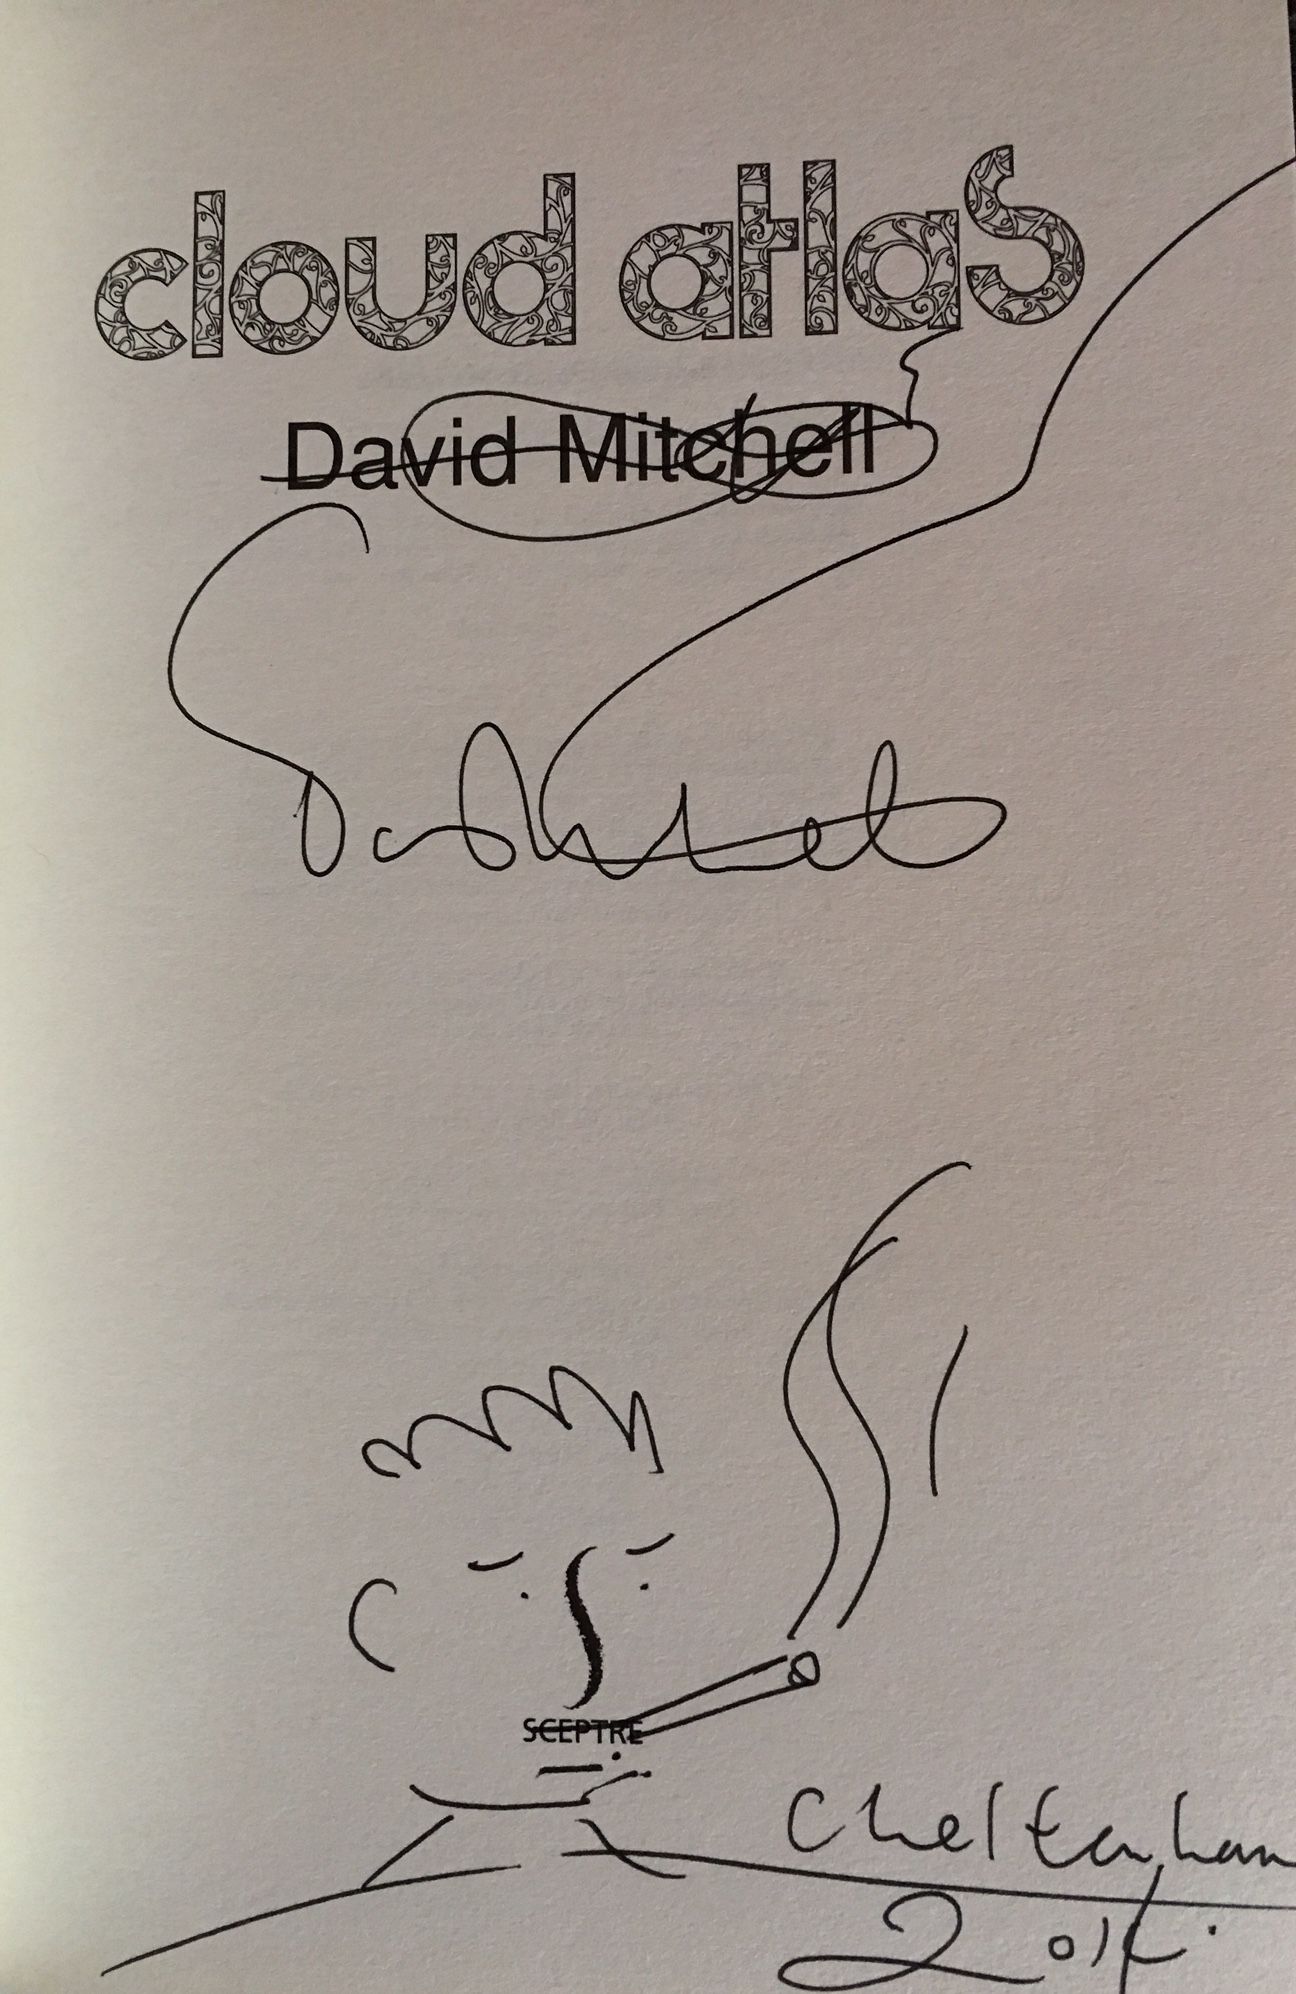 cloud atlas
David Mitchell
David Mitchell
SCEPTRE
Cheltenham
2014.